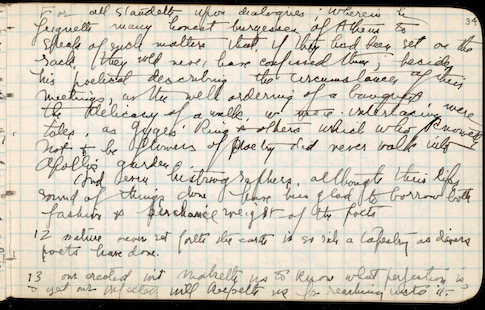 34
For all standeth upon dialogues: Wherein he
feigneth many honest burgesses of Athens to
speak of such matters that, if they had been set on the
rack, they wld never have confessed them; besides
his poetical describing the circumstances of their
meetings, as the well ordering of a banquet
the delicacy of a walk, w interlacing mere
tales, as Gyges' Ring & others which who knoweth
not to be flowers of poetry did never walk into
Apollo's garden
And even historiographers, although their lips
sound of things done have been glad to borrow both
fashion & perchance weight of the poets
12 nature never set forth the earth in so rich a tapestry as divers
poets have done.
13 our erected wit maketh us to know what perfection is
& yet our infected will keepeth us fr reaching unto it.